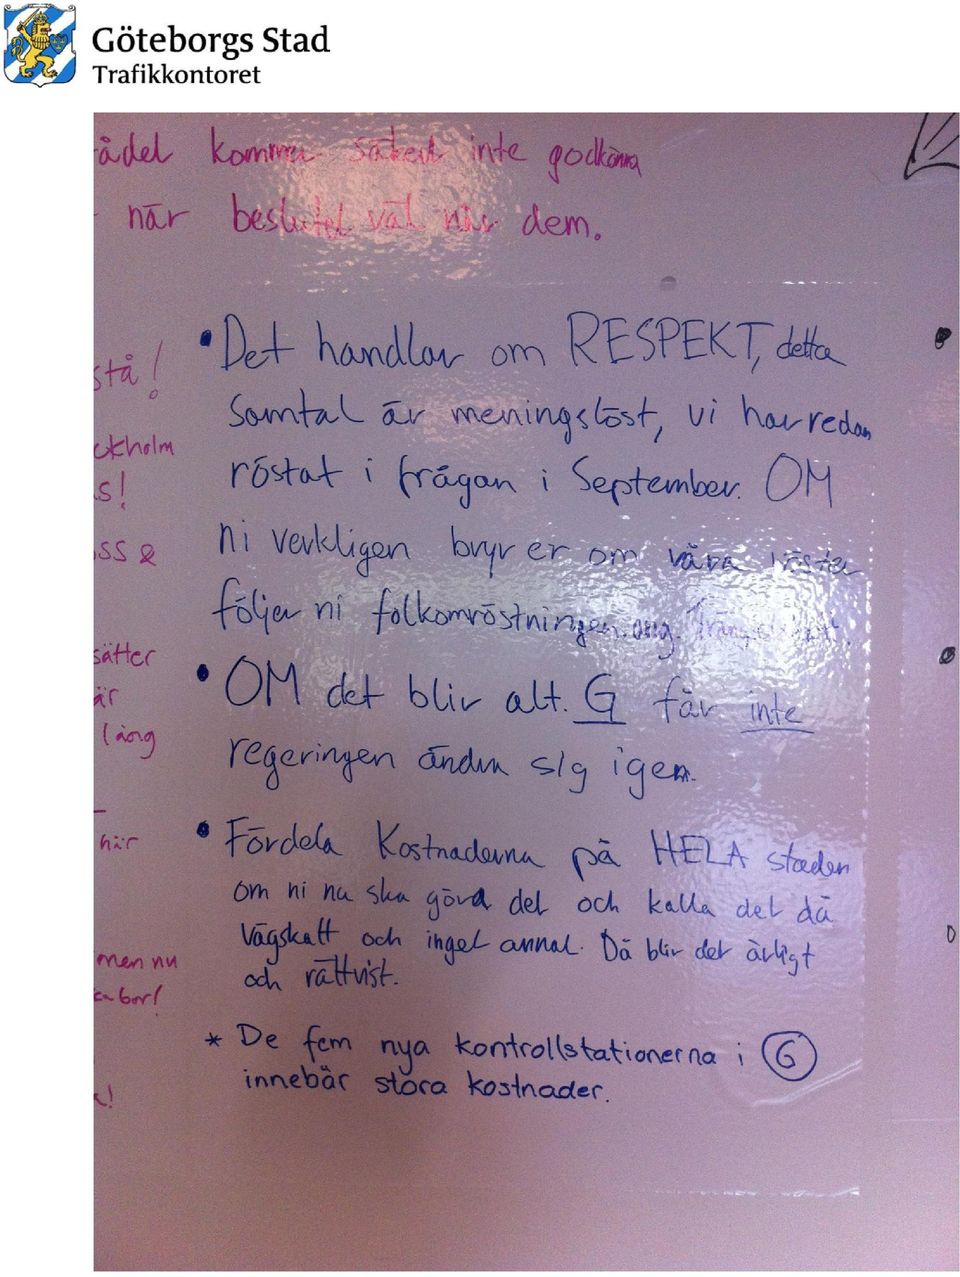 Göteborgs Stad
Trafikkontoret
ådet kommer säkert inte godkänna
när beslutet väl når dem.
stå!
ckholm
s!
ss &
sätter
är
lång
här
men nu
bor!
!
• Det handlar om RESPEKT, detta
samtal är meningslöst, vi har redan
röstat i frågan i September. OM
ni verkligen bryr er om våra röster
följer ni folkomröstningen ang. Trängselskatt.
• OM det blir alt. G får inte
regeringen ändra sig igen.
• Fördela Kostnaderna på HELA staden
om ni nu ska göra det och kalla det då
Vägskatt och inget annat. Då blir det ärligt
och rättvist.
* De fem nya kontrollstationerna i G
innebär stora kostnader.